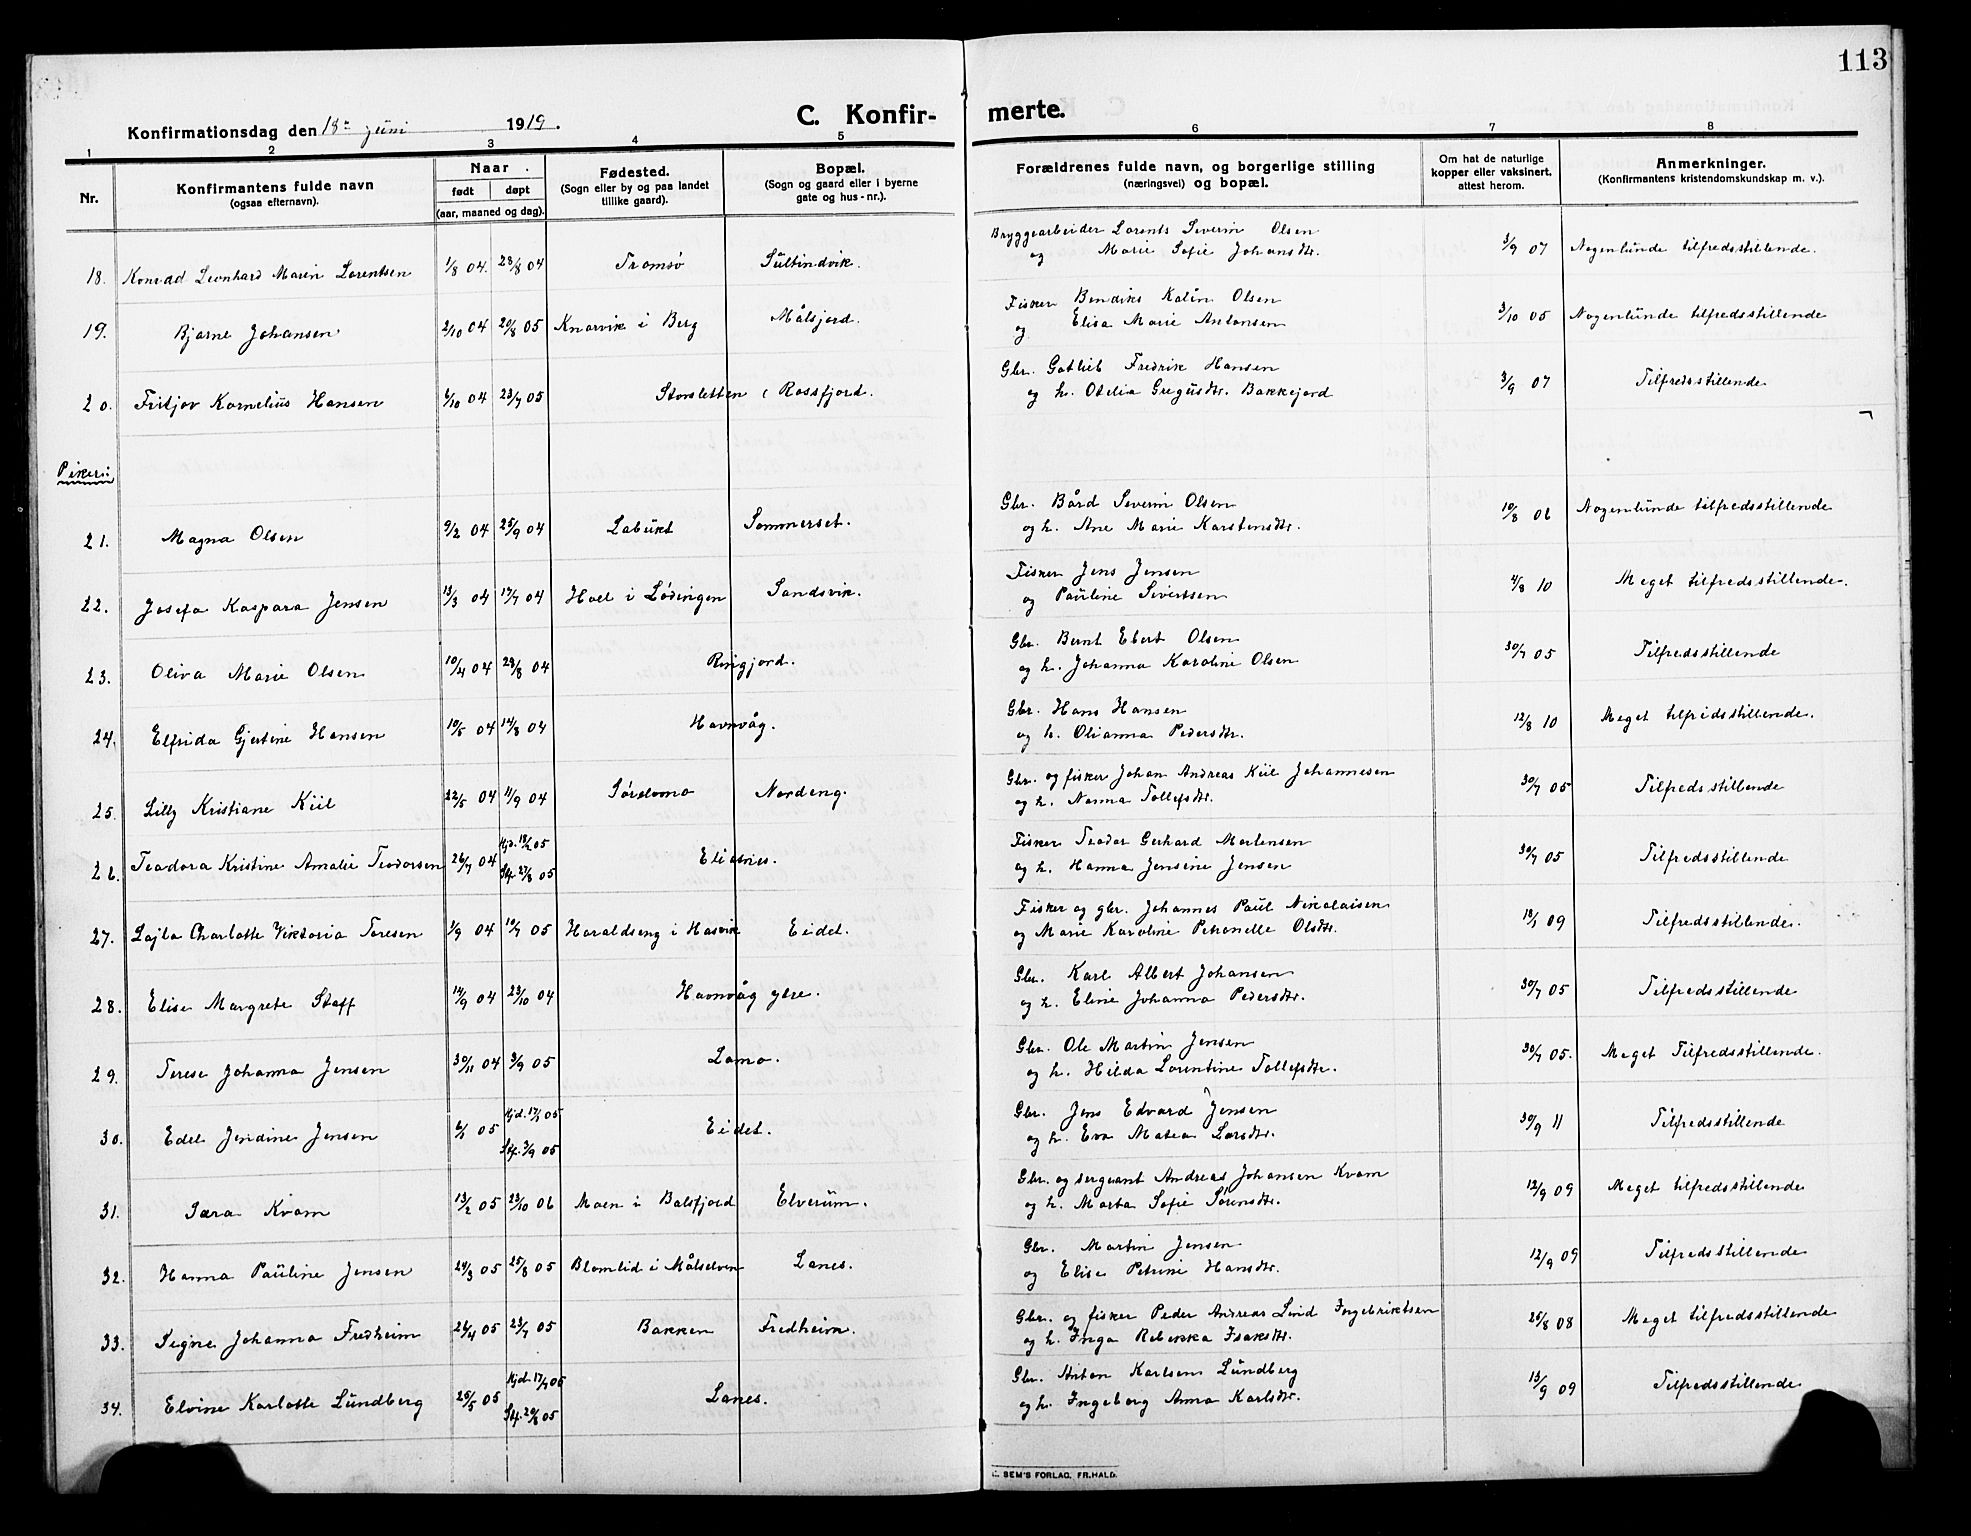 113
C. Konfir- merte.
Konfirmationsdag den 18de juni 1919.
1 2 3 4 5 6 7 8
Nr.
Konfirmantens fulde navn
(ogsaa efternavn).
Naar
født døpt
(aar, maaned og dag).
Fødested.
(Sogn eller by og paa landet
tillike gaard).
Bopæl.
(Sogn og gaard eller i byerne
gate og hus-nr.).
Forældrenes fulde navn, og borgerlige stilling
(næringsvei) og bopæl.
Om hat de naturlige
kopper eller vaksinert,
attest herom.
Anmerkninger.
(Konfirmantens kristendomskundskap m. v.).
18. Konrad Leonhard Marin Lorentsen 1/8 04. 28/8 04 Tromsø Sultindvik. Bryggearbeider Lorents Severin Olsen 3/9 07 Nogenlunde tilfredsstillende.
og Marie Sofie Johansdtr.
19. Bjarne Johansen 2/10 04 20/8 05 Knarvik i Berg Målsjord. Fisker Bendiks Kolin Olsen 3/10 05 Nogenlunde tilfredsstillende
og Elisa Marie Antonsen
20. Fritjov Kornelius Hansen 6/10 04 23/7 05 Storsletten i Rossfjord. Gbr. Gotlieb Fredrik Hansen 3/9 07 Tilfredsstillende
og h. Otelia Gregusdtr. Bakkejord
Piker:
21. Magna Olsen 9/2 04 25/9 04 Labukt Sommerset. Gbr. Bård Severin Olsen 10/8 06 Nogenlunde tilfredsstillende
og h. Ane Marie Karstensdtr.
22. Josefa Kaspara Jensen 13/3 04 17/7 04 Hoel i Lødingen Sandsvik. Fisker Jens Jensen 4/8 10 Meget tilfredsstillende.
og Pauline Sivertsen
23. Oliva Marie Olsen 10/4 04 28/8 04 Ringjord. Gbr. Bernt Ebert Olsen 30/7 05 Tilfredsstillende
og h. Johanna Karoline Olsen
24. Elfrida Gjertine Hansen 10/5 04 14/8 04 Havnvåg. Gbr. Hans Hansen 12/8 10 Meget tilfredsstillende.
og h. Olianna Pedersdtr.
25. Lilly Kristiane Kiil 22/5 04 11/9 04 Nordeng. Gbr. og fisker Johan Andreas Kiil Johannesen 30/7 05 Tilfredsstillende
og h. Norma Tollefsdtr.
26. Teodora Kristine Amalie Teodorsen 26/7 04 Hjd. 18/2 05
Stf. 27/8 05 Elidsnes. Fisker Teodor Gerhard Mortensen 30/7 05 Tilfredsstillende
og h. Hanna Jensine Jensen
27. Lajla Charlotte Viktoria Toresen 1/9 04 10/7 05 Haraldseng i Hasvik Eidet. Fisker og gbr. Johannes Paul Nikolaisen 18/1 09 Tilfredsstillende.
og Marie Karoline Petronelle Olsdtr.
28. Elise Margrete Staff 14/9 04 23/10 04 Havnvåg ytre. Gbr. Karl Albert Johansen 30/7 05 Tilfredsstillende
og h. Eline Johanna Pedersdtr.
29. Terese Johanna Jensen 30/11 04 3/9 05 Lomo. Gbr. Ole Martin Jensen 30/7 05. Meget Tilfredsstillende.
og h. Hilda Lorentine Tollefsdtr.
30. Edel Jendine Jensen 6/1 05 Hjd. 17/1 05
Stf. 3/9 05 Eidet. Gbr. Jens Edvard Jensen 30/9 11 Tilfredsstillende
og h. Eva Matea Larsdtr.
31. Sara Kvam 13/2 05 23/10 06 Moen i Balsfjord Elverum. Gbr. og sergeant Andreas Johansen Kvam 12/9 09 Meget tilfredsstillende
og h. Marta Sofie Sørensdtr.
32. Hanna Pauline Jensen 24/3 05 25/8 05 Blomlid i Målselven Lanes. Gbr. Martin Jensen 12/9 09 Tilfredsstillende
og Elise Petrine Hansdtr.
33. Signe Johanna Fredheim 26/4 05 23/7 05 Bakken Fredheim. Gbr. og fisker Peder Andreas Lind Ingebriktsen 25/8 08 Meget tilfredsstillende
og h. Inga Rebekka Isaksdtr.
34. Elvine Karlotte Lundberg 25/5 05 Hjd. 17/7 05
Stf. 20/8 05 Lanes. Gbr. Anton Karlsen Lundberg 13/9 09 Tilfredsstillende
og h. Ingeborg Anna Karlsdtr.
SEM'S FORLAG, FR.HALD.